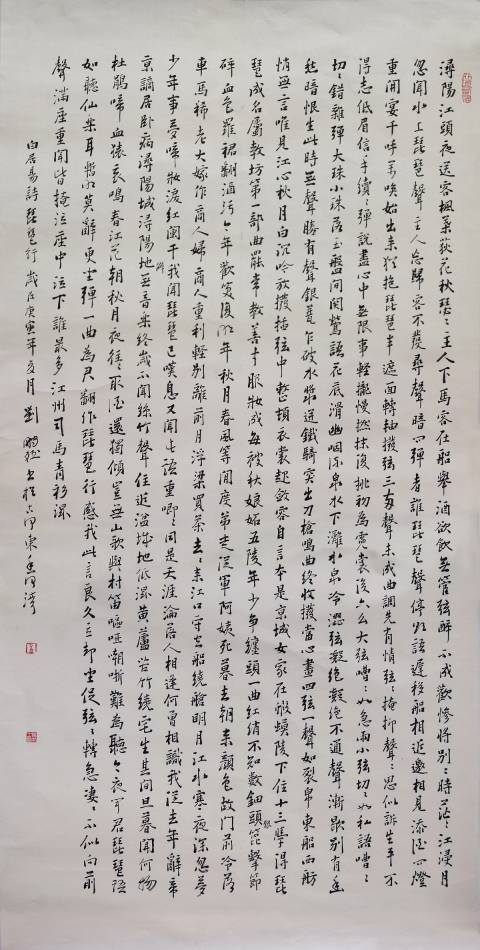 潯陽江頭夜送客楓葉荻花秋瑟〻主人下馬客在船舉酒欲飲無管弦醉不成歡慘將別〻時茫〻江浸月
忽聞水上琵琶聲主人忘歸客不發尋聲暗問彈者誰琵琶聲停欲語遲移船相近邀相見添酒回燈
重開宴千呼萬喚始出來猶抱琵琶半遮面轉軸撥弦三兩聲未成曲調先有情弦〻掩抑聲〻思似訴生平不
得志低眉信手續〻彈說盡心中無限事輕攏慢撚抹復挑初為霓裳後六么大弦嘈〻如急雨小弦切〻如私語嘈〻
切〻錯雜彈大珠小珠落玉盤間關鶯語花底滑幽咽流泉水下灘水泉冷澀弦凝絕凝絕不通聲漸歇別有幽
愁暗恨生此時無聲勝有聲銀瓶乍破水漿迸鐵騎突出刀槍鳴曲終收撥當心畫四弦一聲如裂帛東船西舫
悄無言唯見江心秋月白沉吟放撥插弦中整頓衣裳起斂容自言本是京城女家在蝦蟆陵下住十三學得琵
琶成名屬教坊第一部曲罷常教善才服妝成每被秋娘妒五陵年少爭纏頭一曲紅綃不知數鈿頭銀篦擊節
碎血色羅裙翻酒污今年歡笑復明年秋月春風等閒度弟走從軍阿姨死暮去朝來顏色故門前冷落
車馬稀老大嫁作商人婦商人重利輕別離前月浮梁買茶去〻來江口守空船繞艙明月江水寒夜深忽夢
少年事夢啼妝淚紅闌干我聞琵琶已嘆息又聞此語重唧〻同是天涯淪落人相逢何曾相識我從去年辭帝
京謫居臥病潯陽城潯陽地僻無音樂終歲不聞絲竹聲住近湓城地低濕黃蘆苦竹繞宅生其間旦暮聞何物
杜鵑啼血猿哀鳴春江花朝秋月夜往〻取酒還獨傾豈無山歌與村笛嘔啞嘲哳難為聽今夜聞君琵琶語
如聽仙樂耳暫明莫辭更坐彈一曲為君翻作琵琶行感我此言良久立卻坐促弦〻轉急淒〻不似向前
聲滿座重聞皆掩泣座中泣下誰最多江州司馬青衫濕
白居易詩琵琶行 歲在庚寅年 月 劉 書於